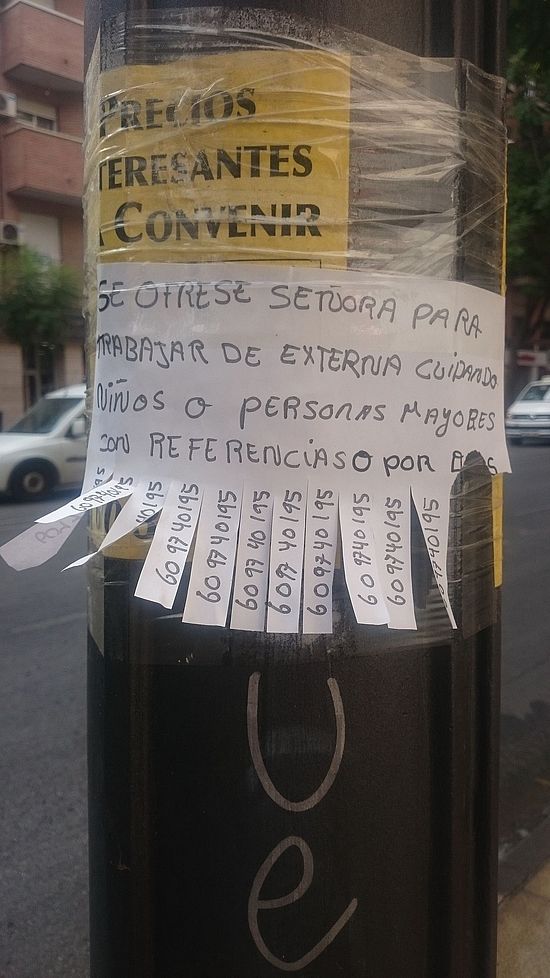 PRECIOS
TERESANTES
A CONVENIR
SE OFRESE SEÑORA PARA
TRABAJAR DE EXTERNA CUIDANDO
NIÑOS O PERSONAS MAYORES
CON REFERENCIAS O POR
609740195
40195
609740195
609740195
609740195
609740195
609740195
609740195
609740195
609740195
U
e